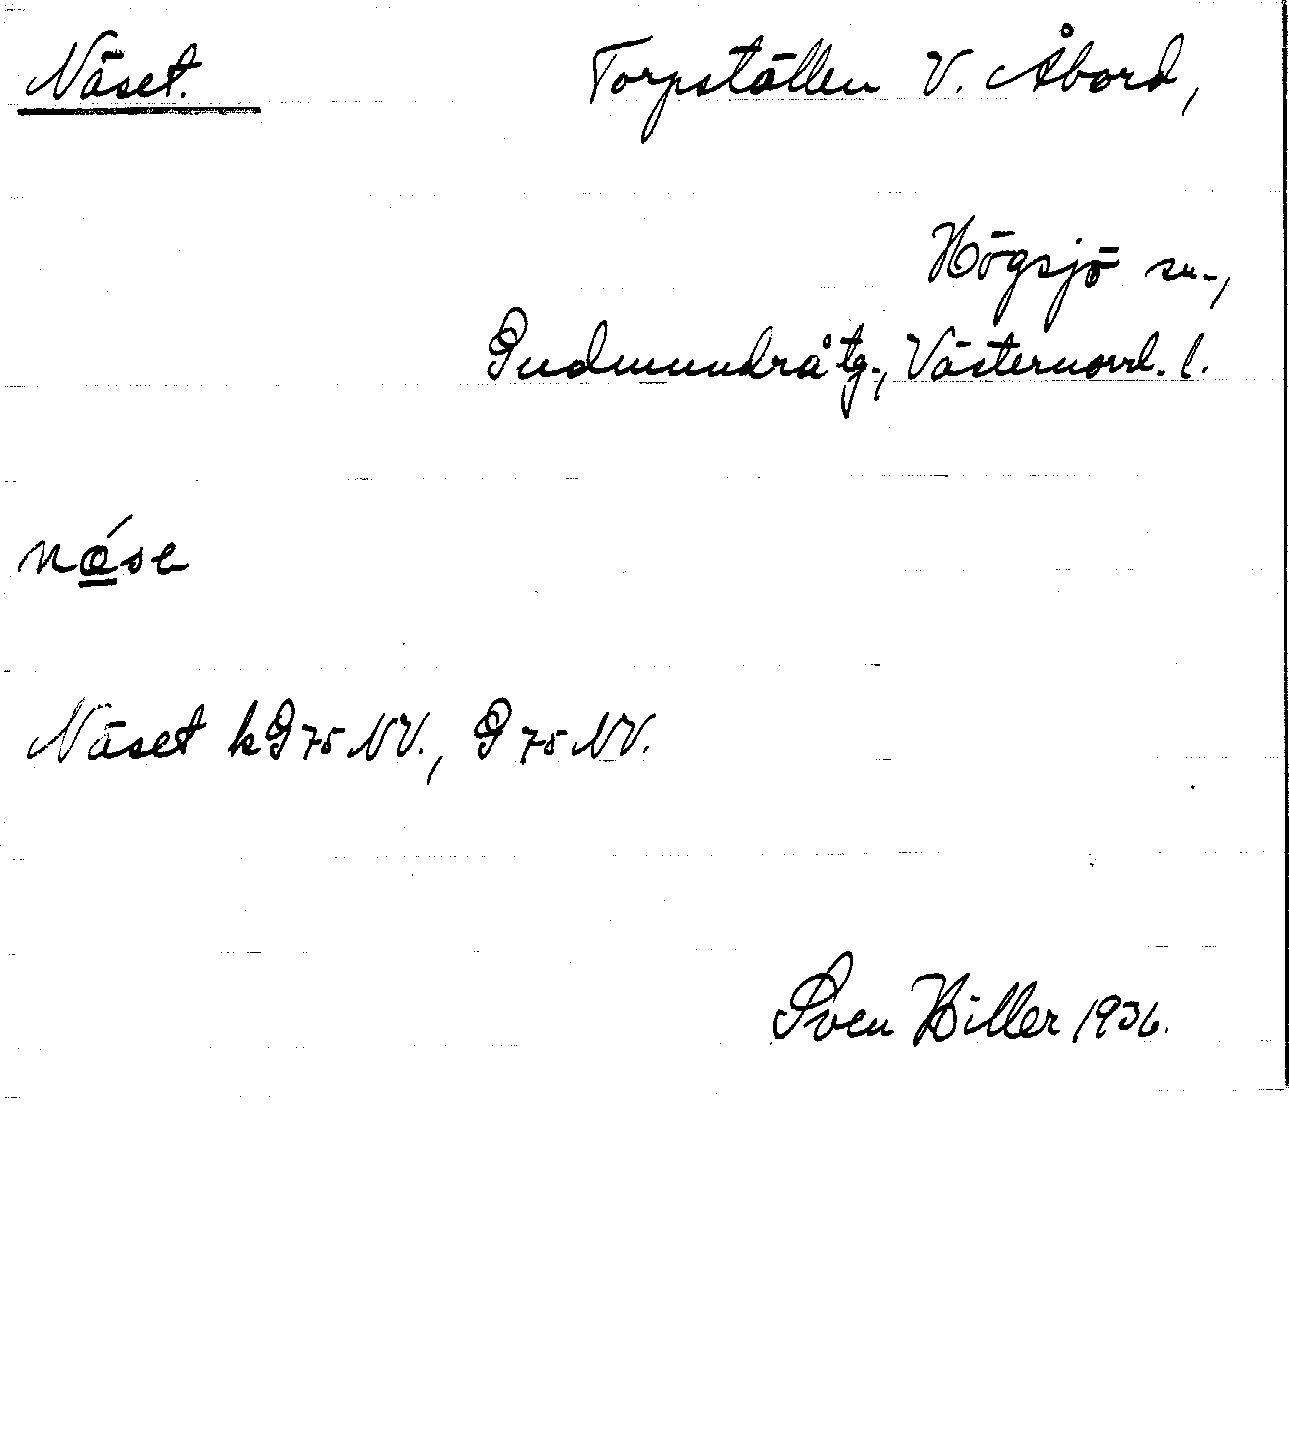 Näset. Torpställen V. Åbord,
Högsjö sn.,
Gudmundrå tg., Västernorrl. l.
nóse
Näset kG 75 NV., G 75 NV.
Sven Hiller 1936.